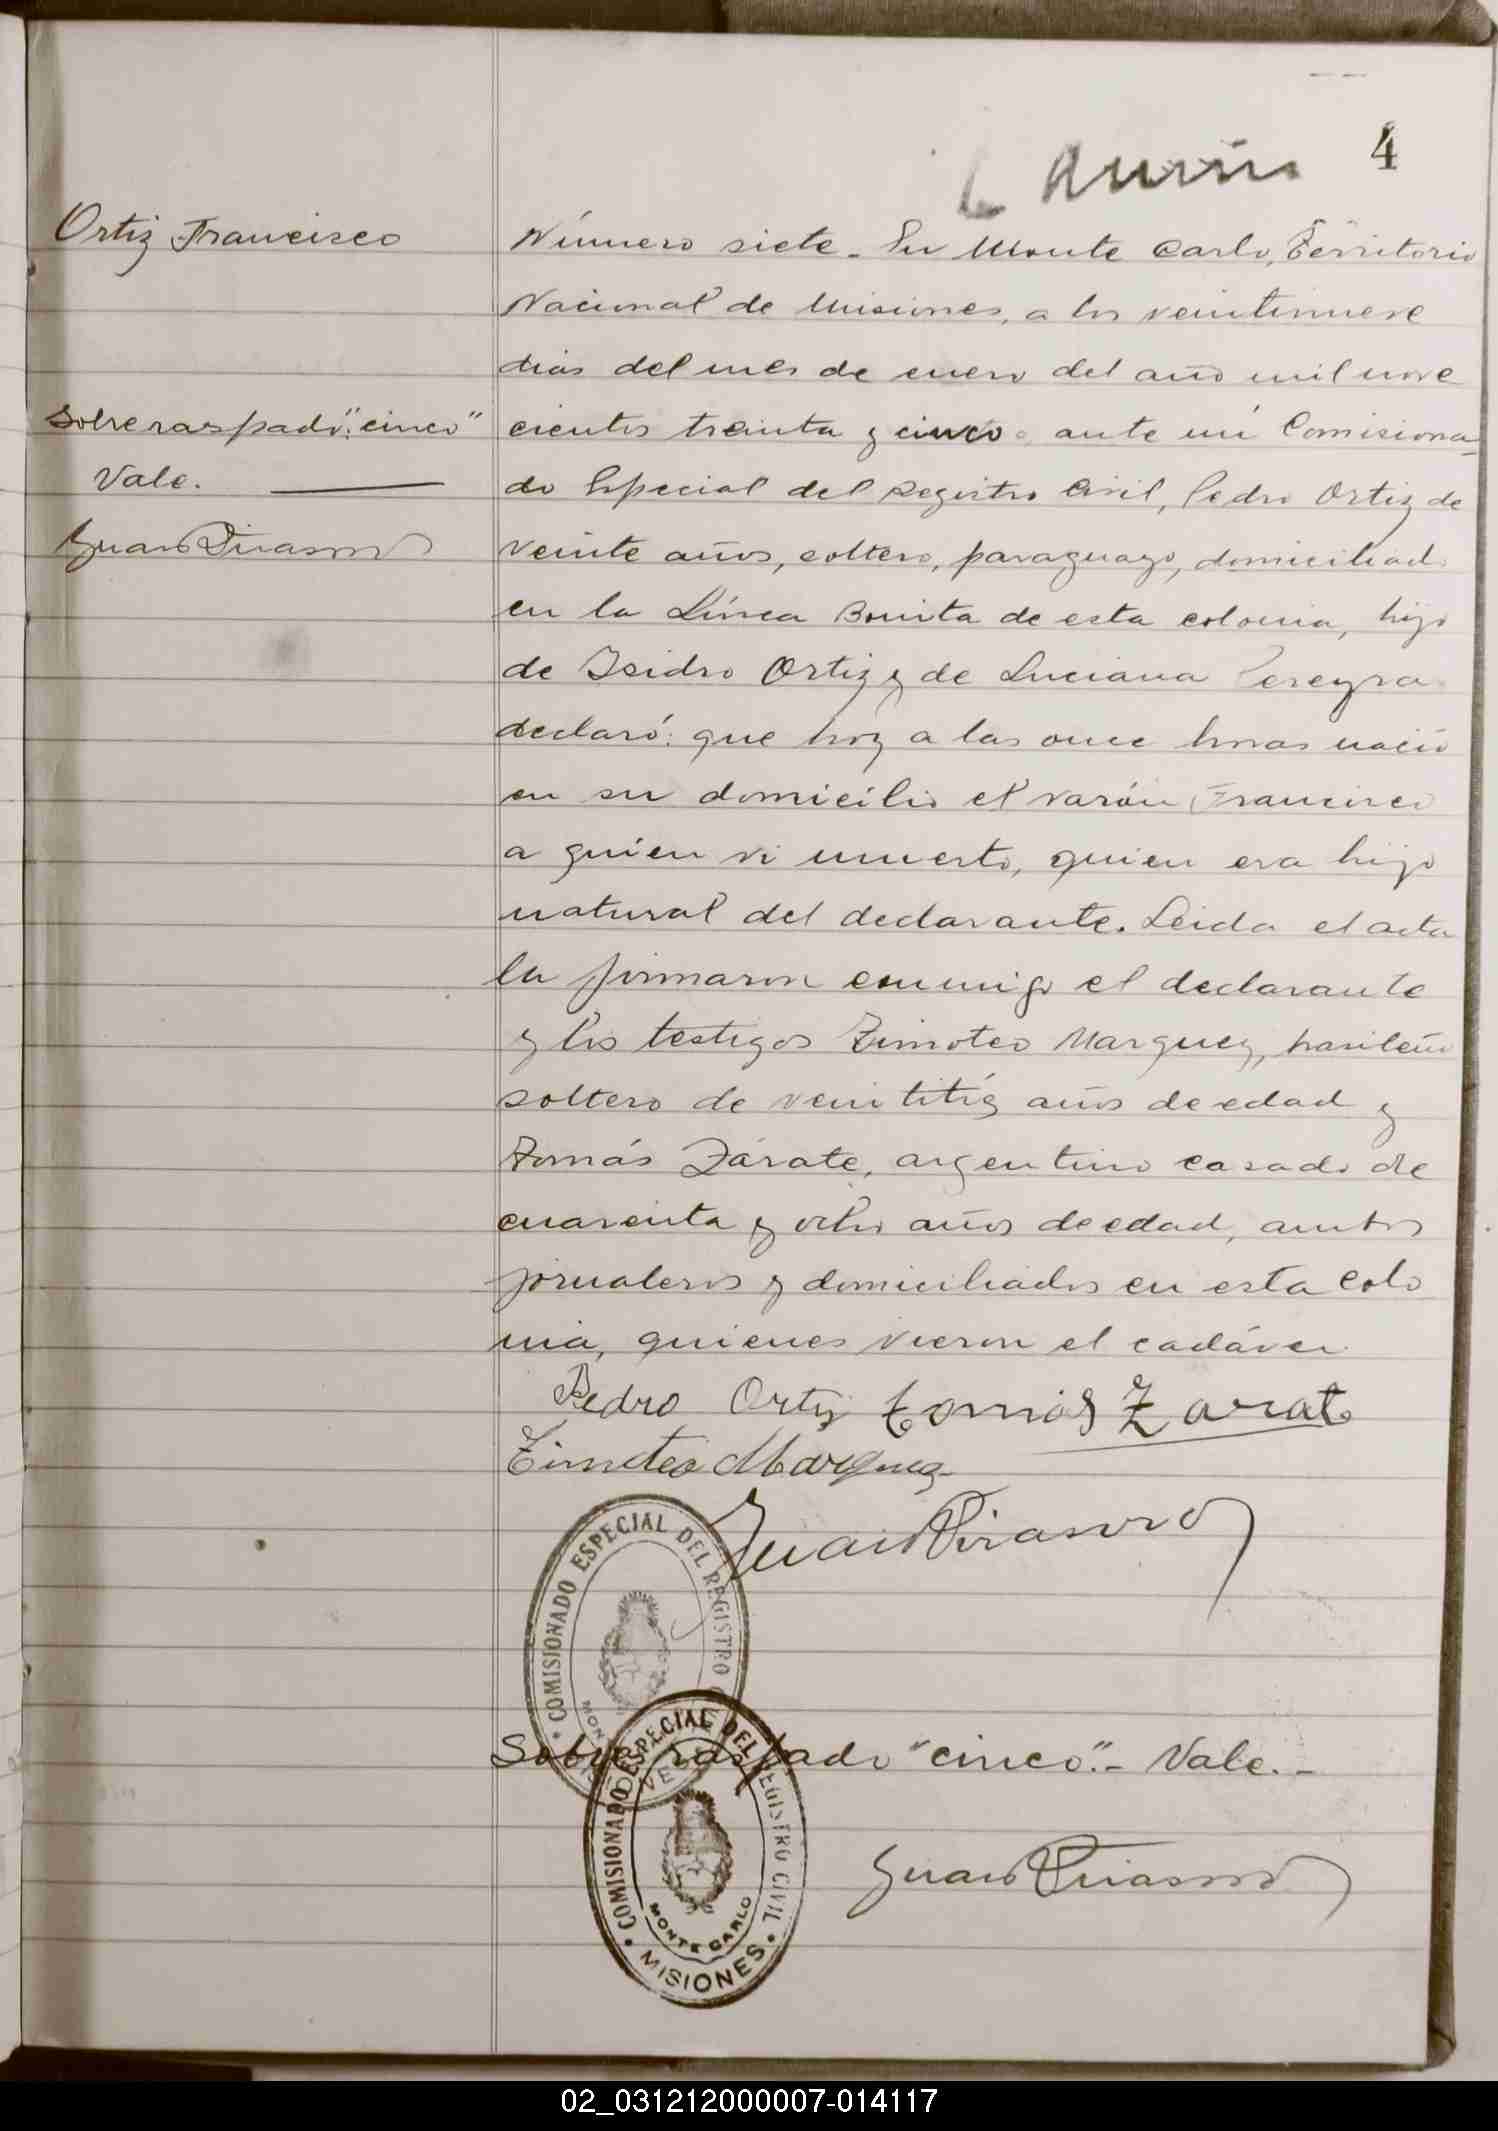 4
Ortiz Francisco
Número siete. En Monte Carlo, Territorio
Nacional de Misiones, a los veintinueve
dias del mes de enero del año mil nove
Sobre raspado: "cinco"
cientos treinta y cinco ante mi Comisiona-
Vale.
do Especial del Registro Civil, Pedro Ortiz de
veinte años, soltero, paraguayo, domiciliado
en la Línea Bonita de esta colonia, hijo
de Isidro Ortiz y de Luciana Pereyra
declaró: que hoy a las once horas nació
en su domicilio el varón Francisco
a quien vi muerto, quien era hijo
natural del declarante. Leida el acta
la firmaron conmigo el declarante
y los testigos Timoteo Marquez, brasileño
soltero de años de edad y
Tomás Zárate, argentino casado de
cuarenta y ocho años de edad, ambos
jornaleros y domiciliados en esta colo
nia, quienes vieron el cadáver.
Pedro Ortiz Tomás Zarate
Timoteo Marquez
Juan
COMISIONADO ESPECIAL DEL REGISTRO
Sobre raspado "cinco".- Vale.-
COMISIONADO ESPECIAL DEL REGISTRO CIVIL
MONTE CARLO
MISIONES
Juan
02_031212000007-014117